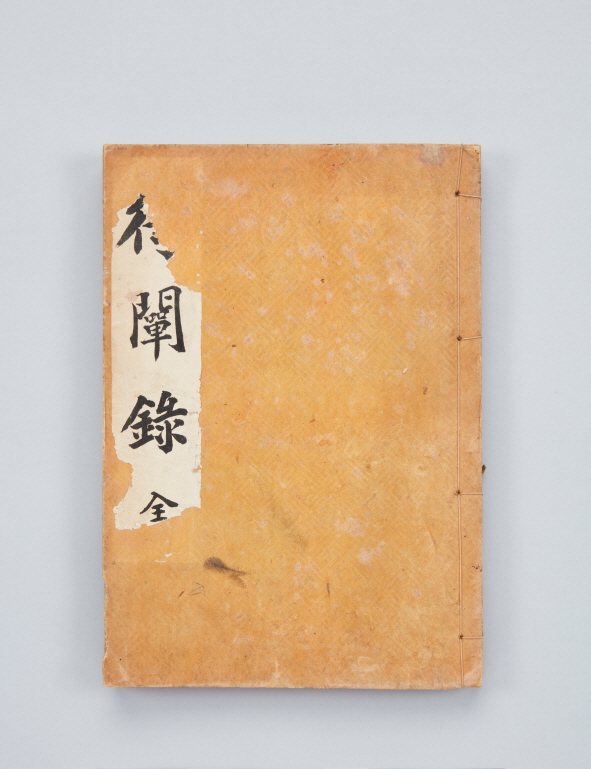 闡錄全